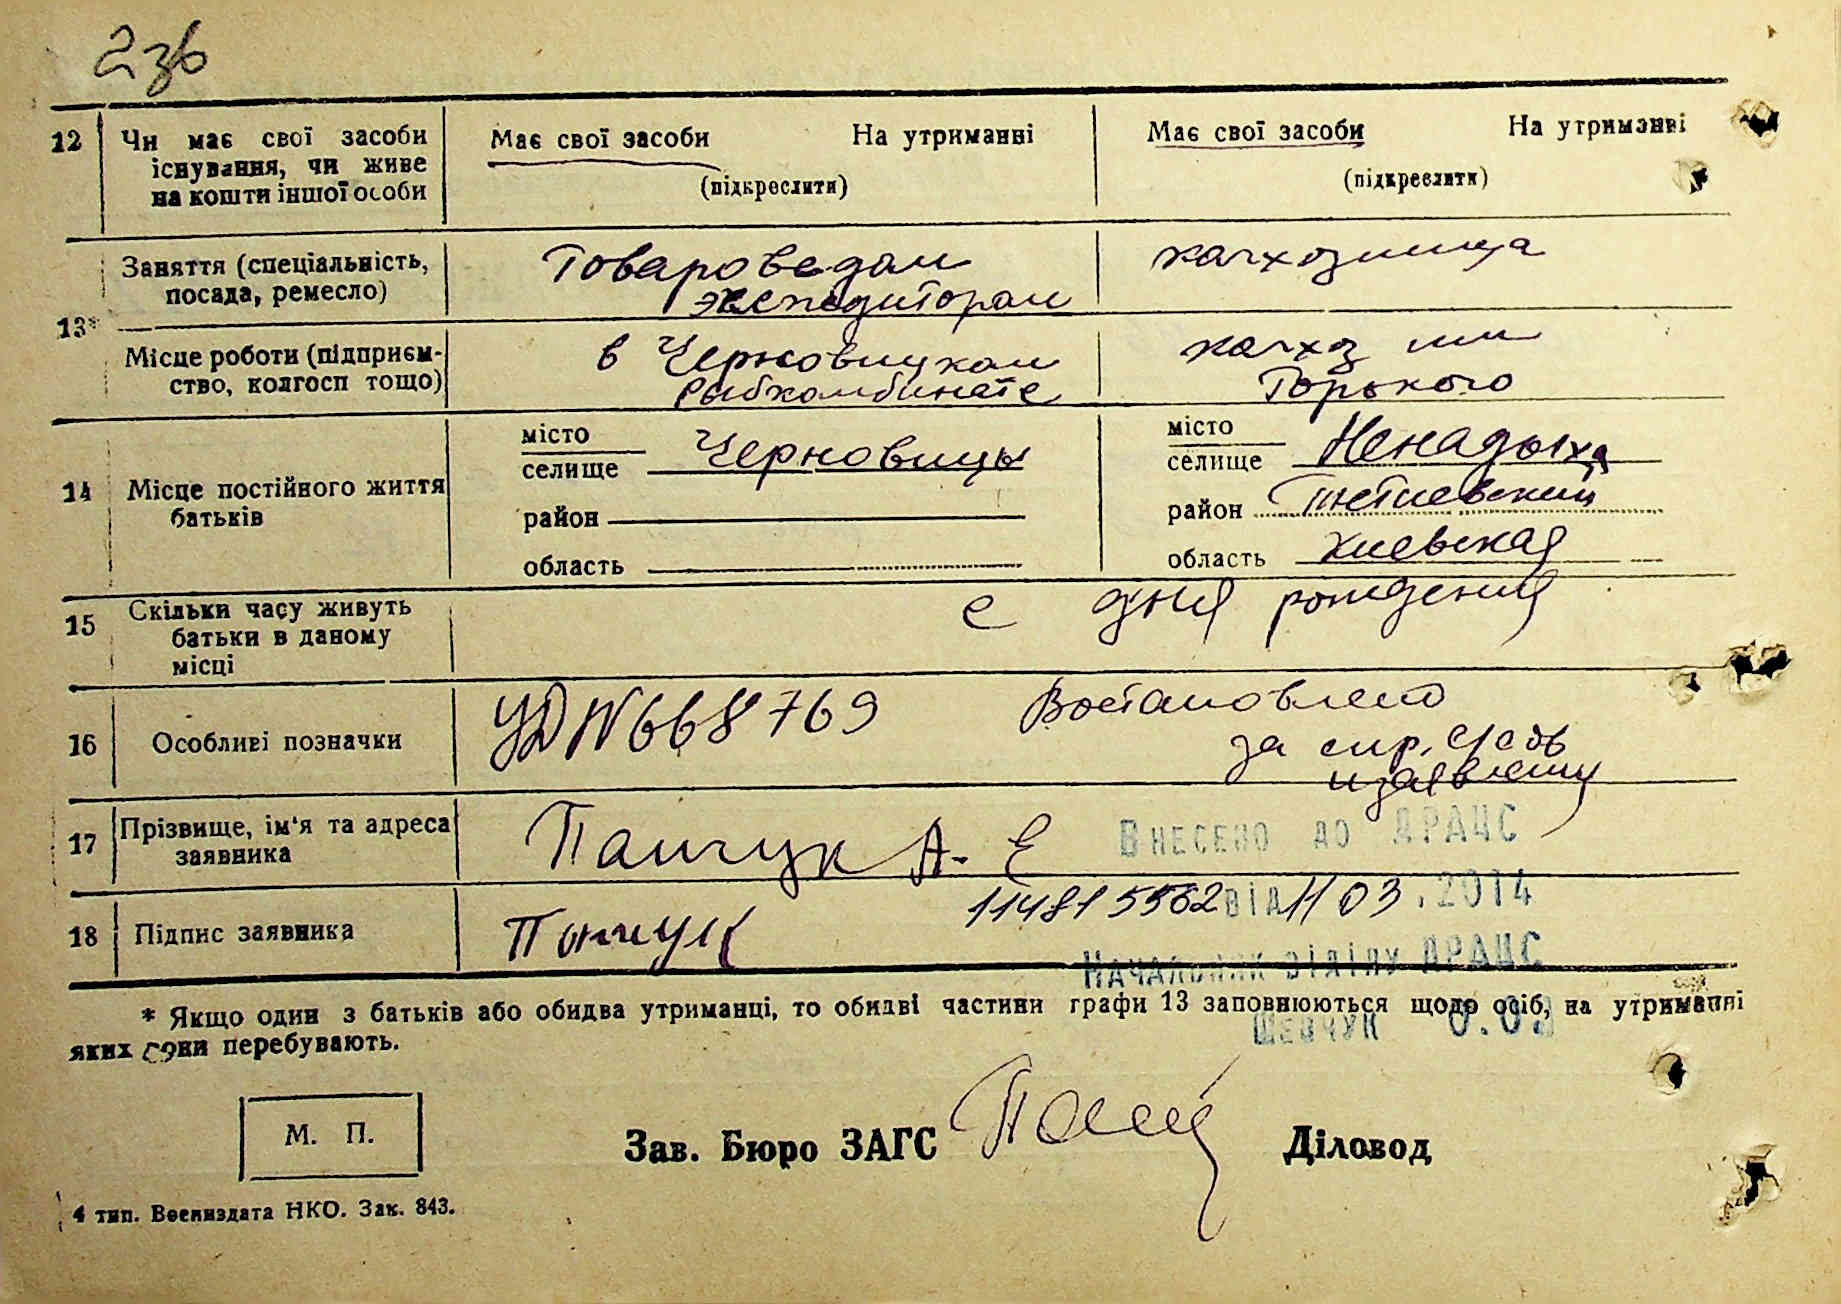 23б
12 Чи має свої засоби існування, чи живе на кошти іншої особи
Має свої засоби На утриманні
(підкреслити)
Має свої засоби На утриманні
(підкреслити)
13*
Заняття (спеціальність,
посада, ремесло)
Товароведом
экспедитором
колхозница
Місце роботи (підприєм-
ство, колгосп тощо)
в Черновицком
Рыбкомбинате
колхоз им
Горького
14 Місце постійного життя
батьків
місто
селище Черновицы
район
область
місто
селище Ненадыха
район Тетиевский
область Киевская
15 Скільки часу живуть
батьки в даному
місці
с дня рождения
16 Особливі позначки
УД N 668769 Востановлено
за спр. с/сов
и заявлению
17 Прізвище, ім'я та адреса
заявника
Панчук А. Е
Внесено до ДРАЦС
18 Підпис заявника
Панчук
від 11 03.2014
Начальник відділу ДРАЦС
Шевчук О.О
* Якщо один з батьків або обидва утриманці, то обидві частини графи 13 заповнюються щодо осіб, на утриманні
яких вони перебувають.
М. П.
Зав. Бюро ЗАГС
Діловод
4 тип. Воениздата НКО. Зак. 843.